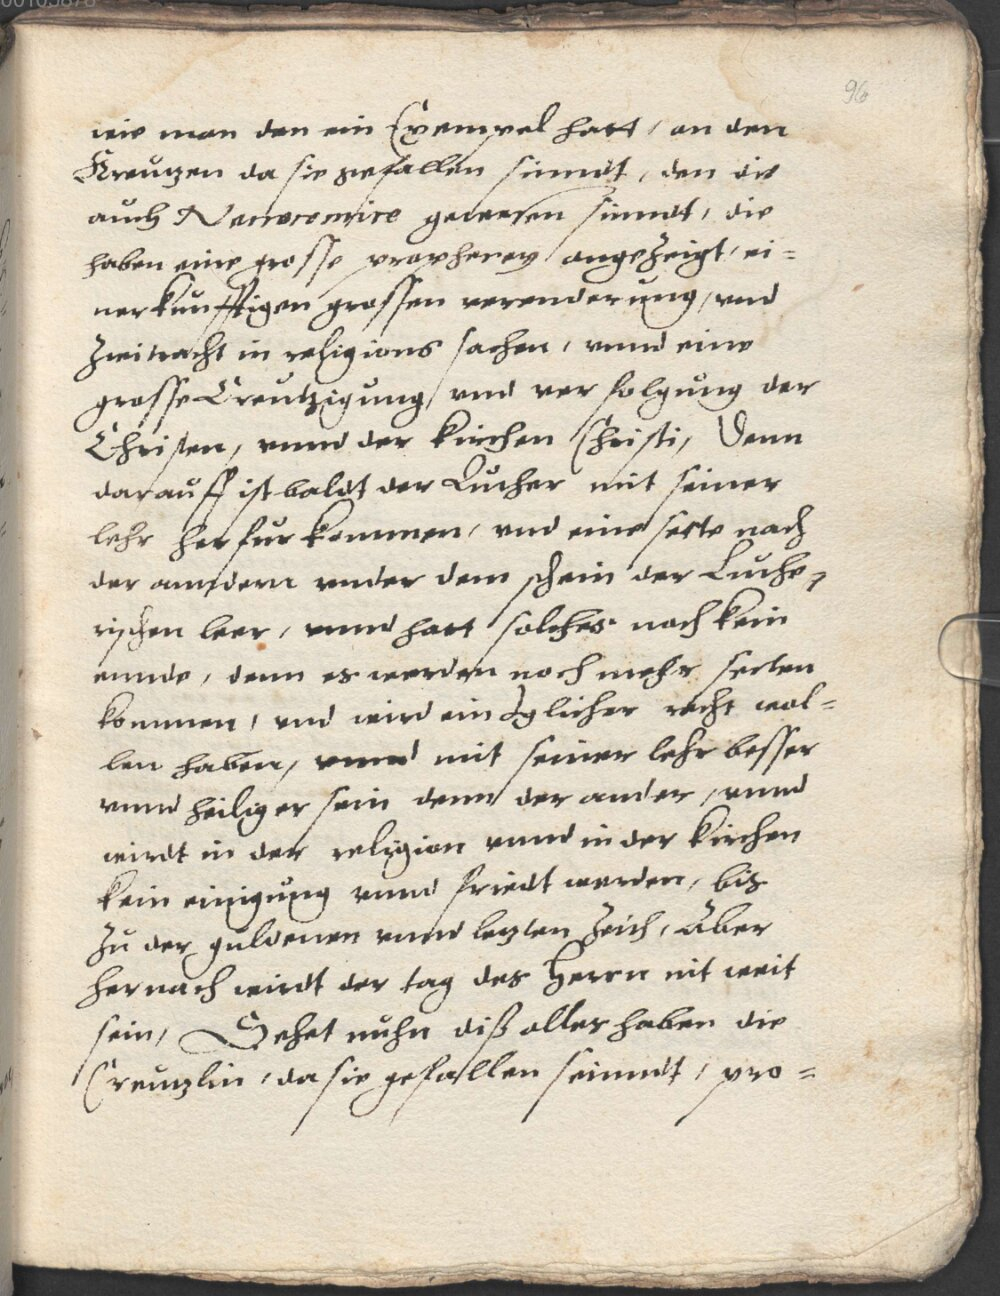 00105878
96
wie man den ein Exempel hatt, an den
Kreutzen da sie gefallen sinndt, den die
auch Necrocomice gewesen sinndt, die
haben eine grosse prophecey angezeigt, ei=
ner kunfftigen grossen verenderung, und
Zwitracht in religions sachen, unnd eine
grosse Creutzigung, und verfolgung der
Christen, unnd der kirchen Christi, Denn
darauff ist baldt der Luther mit seiner
lehr herfur kommen, und eine secte nach
der anndern under dem schein der Luthe=
rischen leer, unnd hatt solches noch kein
ennde, denn es werden noch mehr secten
kommen, und wird ein Iglicher recht wol=
len haben, unnd mit seiner lehr besser
unnd heiliger sein denn der ander, unnd
wirdt in der religion unnd in der kirchen
kein einigung unnd friedt werden, bis
zu der guldenen unnd letzten Zeith, Aber
hernach wirdt der tag des Herrn nit weit
sein, Sehet nuhn diß alles haben die
Creutzlin, da sie gefallen seinndt, pro=